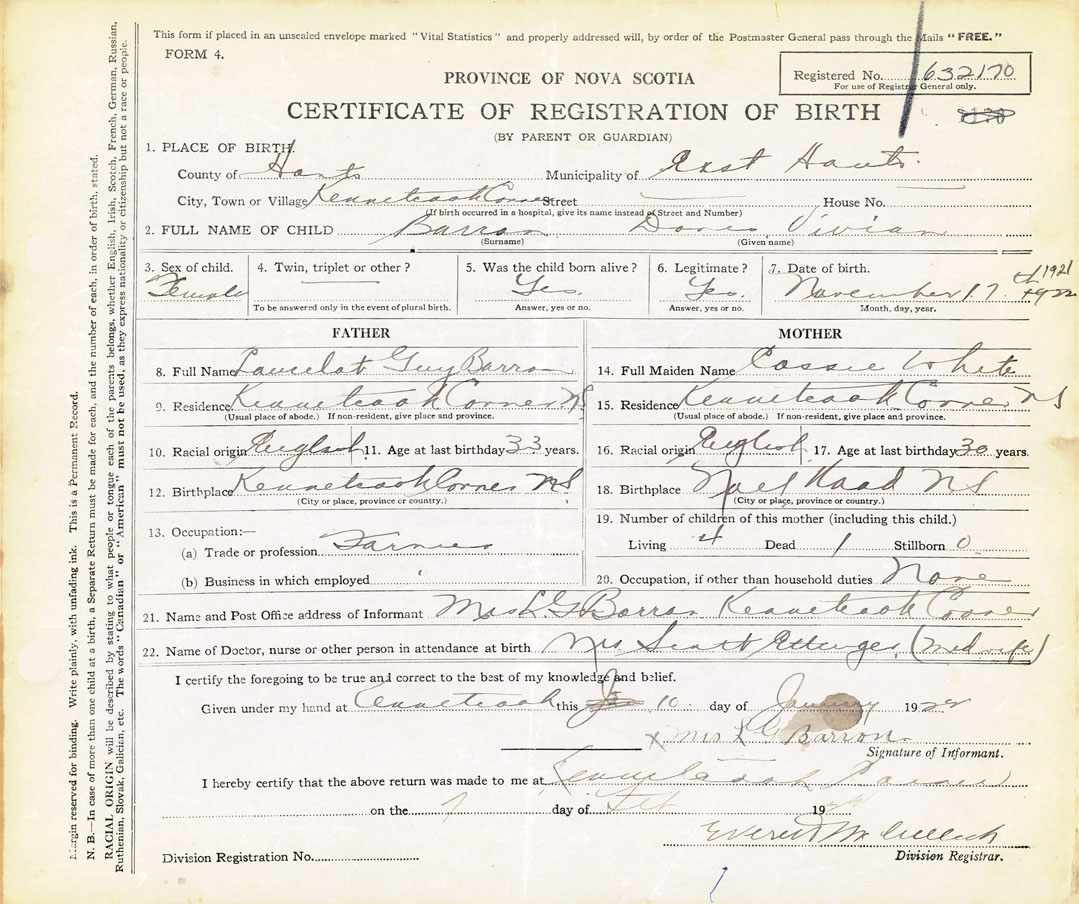 This form if placed in an unsealed envelope marked "Vital Statistics" and properly addressed will, by order of the Postmaster General pass through the Mails "FREE."
FORM 4.
Registered No. 632170
For use of Registrar General only.
PROVINCE OF NOVA SCOTIA
CERTIFICATE OF REGISTRATION OF BIRTH
(BY PARENT OR GUARDIAN)
1. PLACE OF BIRTH
County of Hants Municipality of East Hants
City, Town or Village Kennetcook Corner Street House No.
(If birth occurred in a hospital, give its name instead of Street and Number)
2. FULL NAME OF CHILD Barron Doris Vivian
(Surname) (Given name)
3. Sex of child. 4. Twin, triplet or other? 5. Was the child born alive? 6. Legitimate? 7. Date of birth.
Female Yes. Yes. November 17th 1921 1922
To be answered only in the event of plural birth. Answer, yes or no. Answer, yes or no. Month, day, year.
FATHER MOTHER
8. Full Name Lancelot Guy Barron 14. Full Maiden Name Cassie White
9. Residence Kennetcook Corner NS 15. Residence Kennetcook Corner NS
(Usual place of abode.) If non-resident, give place and province. (Usual place of abode.) If non-resident, give place and province.
10. Racial origin English 11. Age at last birthday 33 years. 16. Racial origin English 17. Age at last birthday 30 years.
12. Birthplace Kennetcook Corner NS 18. Birthplace Noel Road NS
(City or place, province or country.) (City or place, province or country.)
13. Occupation:— 19. Number of children of this mother (including this child.)
(a) Trade or profession Farmer Living 4 Dead 1 Stillborn 0
(b) Business in which employed 20. Occupation, if other than household duties None
21. Name and Post Office address of Informant Mrs L G Barron Kennetcook Corner
22. Name of Doctor, nurse or other person in attendance at birth Mrs Scott Ettinger (Midwife)
I certify the foregoing to be true and correct to the best of my knowledge and belief.
Given under my hand at Kennetcook this 10 day of January 1922
x Mrs L G Barron
Signature of Informant.
I hereby certify that the above return was made to me at Kennetcook Corner
on the 7 day of 19
Everett McCulloch
Division Registrar.
Division Registration No.
Margin reserved for binding. Write plainly, with unfading ink. This is a Permanent Record.
N. B.—In case of more than one child at a birth, a Separate Return must be made for each, and the number of each, in order of birth, stated.
RACIAL ORIGIN will be described by stating to what people or tongue each of the parents belongs, whether English, Irish, Scotch, French, German, Russian,
Ruthenian, Slovak, Galician, etc. The words "Canadian" or "American" must not be used, as they express nationality or citizenship but not a race or people.